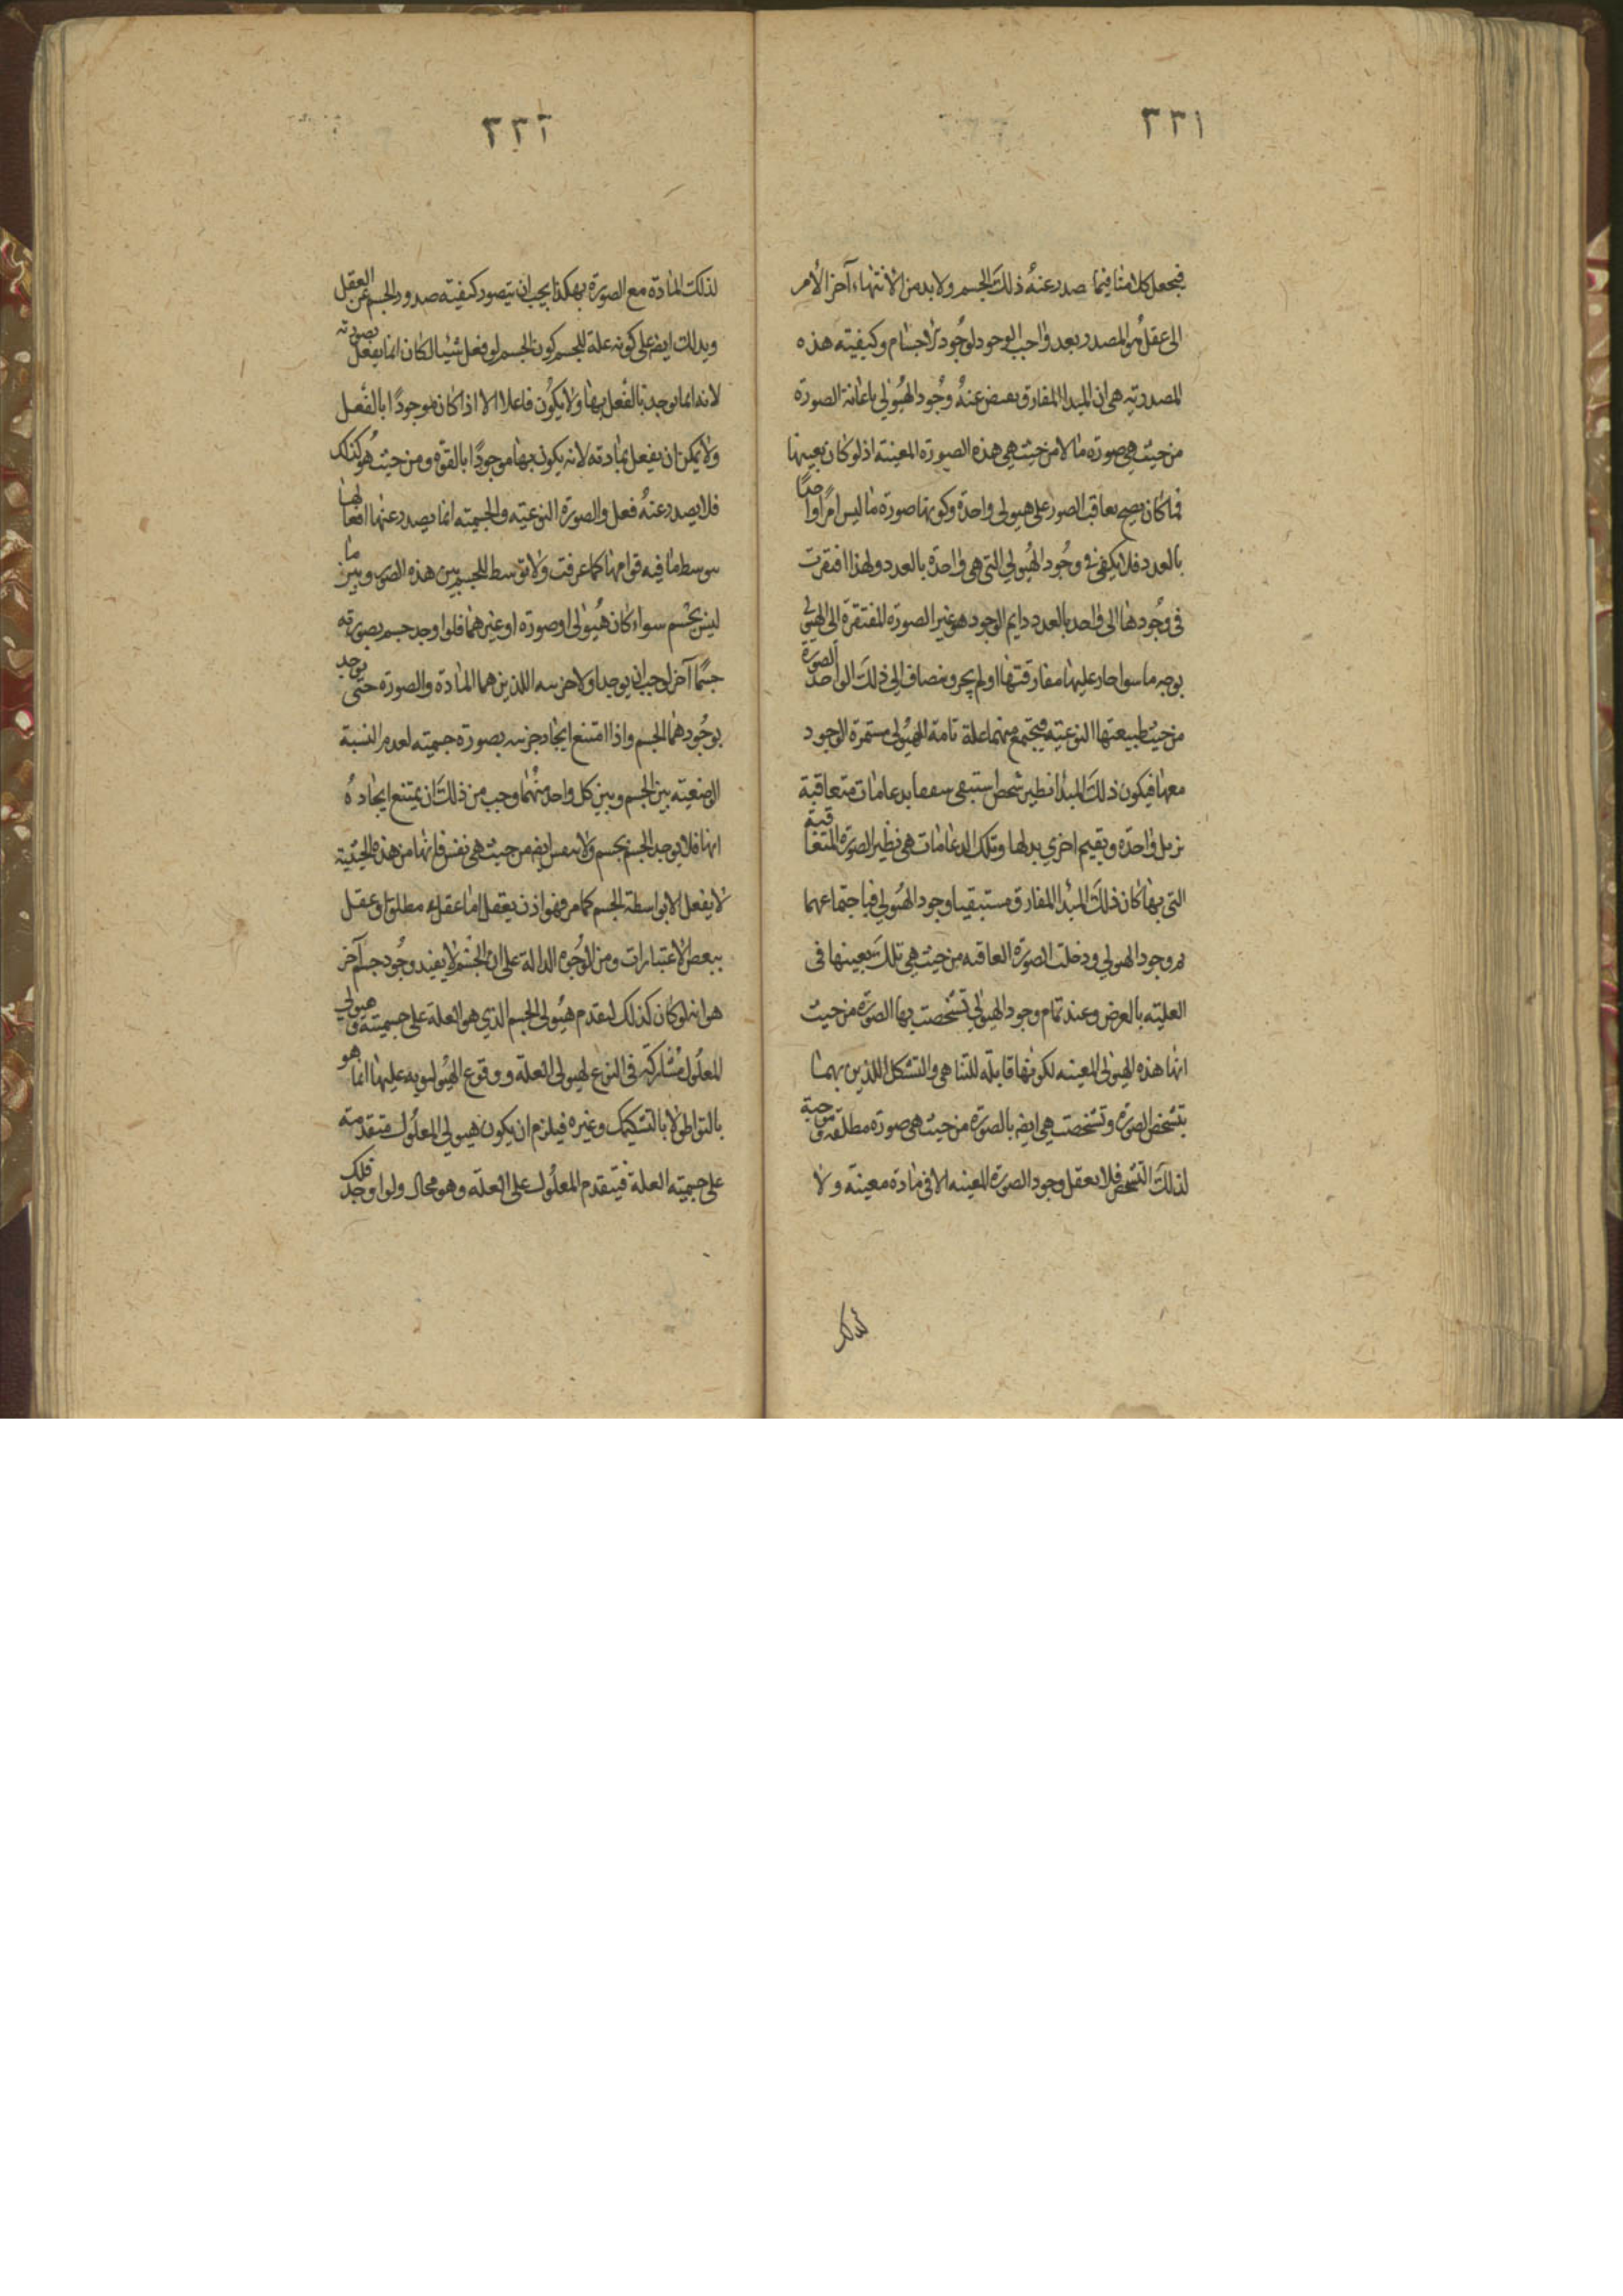 ٣٣١
فيجعل كلامنا فيما صدر عنه ذلك الجسم ولا بد من الانتهاء آخر الأمر
الى عقل هو المصدر بعد واجب الوجود لوجود الاجسام وكيفيته هذه
المصدرية هى ان المبدا المفارق يفيض عنه وجود الهيولي باعانة الصورة
من حيث هي صورة ما لا من حيث هي هذه الصورة المعينة اذ لو كان بعينها
لما كان يصح تعاقب الصور على هيولى واحدة وكونها صورة ما ليس امرا واحدا
بالعدد فلا يكفي في وجود الهيولي التى هي واحدة بالعدد ولهذا افتقرت
فى وجودها الى واحد بالعدد دايم الوجود هو غير الصورة المفتقرة الى الهيولى
بوجه ما سوا جاز عليها مفارقتها او لم يجز وينضاف الي ذلك الواحد الصورة
من حيث طبيعتها النوعيته فيجتمع منهما علة تامة للهيولى مستمرة الوجود
معها فيكون ذلك المبدا نظير شخص استبقى سقفا بدعامات متعاقبة
يزيل واحدة ويقيم اخري بدلها وتلك الدعامات هى نظير الصورة المتعاقبة
التى بها كان ذلك المبدأ المفارق مستبقيا وجود الهيولي فباجتماعهما
تم وجود الهيولي ودخلت الصورة العاقبه من حيث هي تلك بعينها فى
العليته بالعرض وعند تمام وجود الهيولي تشخصت بها الصورة من حيث
انها هذه الهيولى المعينه لكونها قابلة للتناهى والتشكل اللذين بهما
يتشخص الصورة وتشخصت هى ايضا بالصورة من حيث هى صورة مطلقة موجبة
لذلك التشخص فلا يعقل وجود الصورة المعينه الا فى مادة معينة ولا
لذلك
٣٣٢
لذلك المادة مع الصورة بهكذا يجب ان يتصور كيفيته صدور الجسم عن العقل
ويدلك ايضا على كونه علة للجسم كون الجسم لو فعل شيئا لكان انما يفعل بصورته
لانه انما يوجد بالفعل بها ولا يكون فاعلا الا اذا كان موجودًا بالفعل
ولا يمكن ان يفعل بمادته لانه يكون بها موجودًا بالقوه ومن حيث هو كذلك
فلا يصدر عنه فعل والصورة النوعيته والجسميته انما يصدر عنها افعالها
بتوسط ما فيه قوامها كما عرفت ولا توسط للجسم بين هذه الصور وبين ما
ليس بجسم سواء كان هيولى او صورة او غيرهما فلو اوجد جسم بصورته
جسما آخر لوجب ان يوجد اولا جزئيه اللذين هما المادة والصورة حتى يوجد
بوجودهما الجسم واذا امتنع ايجاد جزئيه بصورة جسميته لعدم النسبة
الوضعيته بين الجسم وبين كل واحد منهما وجب من ذلك ان يمتنع ايجاده
ايضا فلا يوجد الجسم بجسم ولا بنفس ايضا من حيث هى نفس فانها من هذه الحيثية
لا يفعل الا بواسطة الجسم كما مر فهو اذن بعقل اما عقل مطلق او عقل
ببعض الاعتبارات ومن الوجوه الدالة على ان الجسم لا يفيد وجود جسم آخر
هو انه لو كان كذلك لتقدم هيولى الجسم الذي هو العلة على جسميته وهيولي
المعلول مشاركة فى النوع لهيولى العلة ووقوع الهيوليويه عليها انما هو
بالتواطى لا بالتشكيك وغيره فيلزم ان يكون هيولي المعلول متقدمته
على جسميته العلة فيتقدم المعلول على العلة وهو محال ولو اوجد فلك